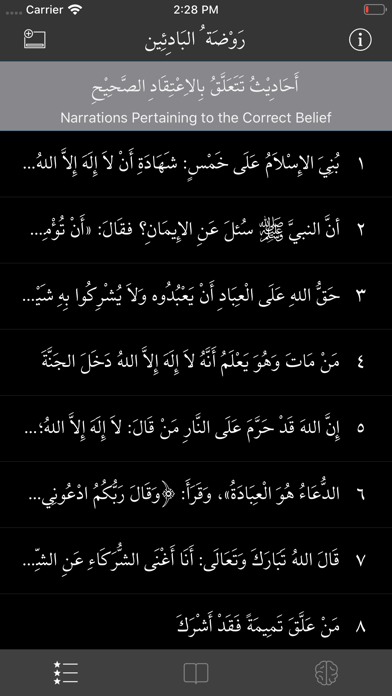 Carrier 2:28 PM
رَوْضَةُ البَادِئِين
أَحَادِيْثُ تَتَعَلَّقُ بِالاِعْتِقَادِ الصَّحِيْحِ
Narrations Pertaining to the Correct Belief
١ بُنِيَ الإِسْلاَمُ عَلَى خَمْسٍ: شَهَادَةِ أَنْ لاَ إِلَهَ إِلاَّ اللهُ...
٢ أنَّ النبيَّ ﷺ سُئلَ عَنِ الإِيمَانِ؟ فقَالَ: «أَنْ تُؤْمِ...
٣ حَقُّ اللهِ عَلَى العِبَادِ أَنْ يَعْبُدُوه وَلاَ يُشْرِكُوا بِهِ شَيْ...
٤ مَنْ مَاتَ وَهُوَ يَعْلَمُ أَنَّهُ لاَ إِلَهَ إِلاَّ اللهُ دَخَلَ الجَنَّةَ
٥ إِنَّ اللهَ قَدْ حَرَّمَ عَلَى النَّارِ مَنْ قَالَ: لاَ إِلَهَ إِلاَّ اللهُ؛...
٦ الدُّعَاءُ هُوَ الْعِبَادَةُ»، وَقَرَأَ: ﴿وَقَالَ رَبُّكُمُ ادْعُونِي...
٧ قَالَ اللهُ تَبَارَكَ وَتَعَالَى: أَنَا أَغْنَى الشُّرَكَاءِ عَنِ الشِّ...
٨ مَنْ عَلَّقَ تَمِيمَةً فَقَدْ أَشْرَكَ